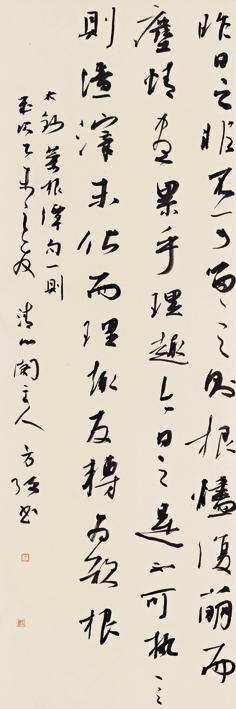 昨日之非不可留々之則根燼復萌而
塵情累乎理趣今日之是不可執々之
則渣滓未化而理趣反轉為欲根
菜根譚句一則
乙未之夏 清心閣主人 書